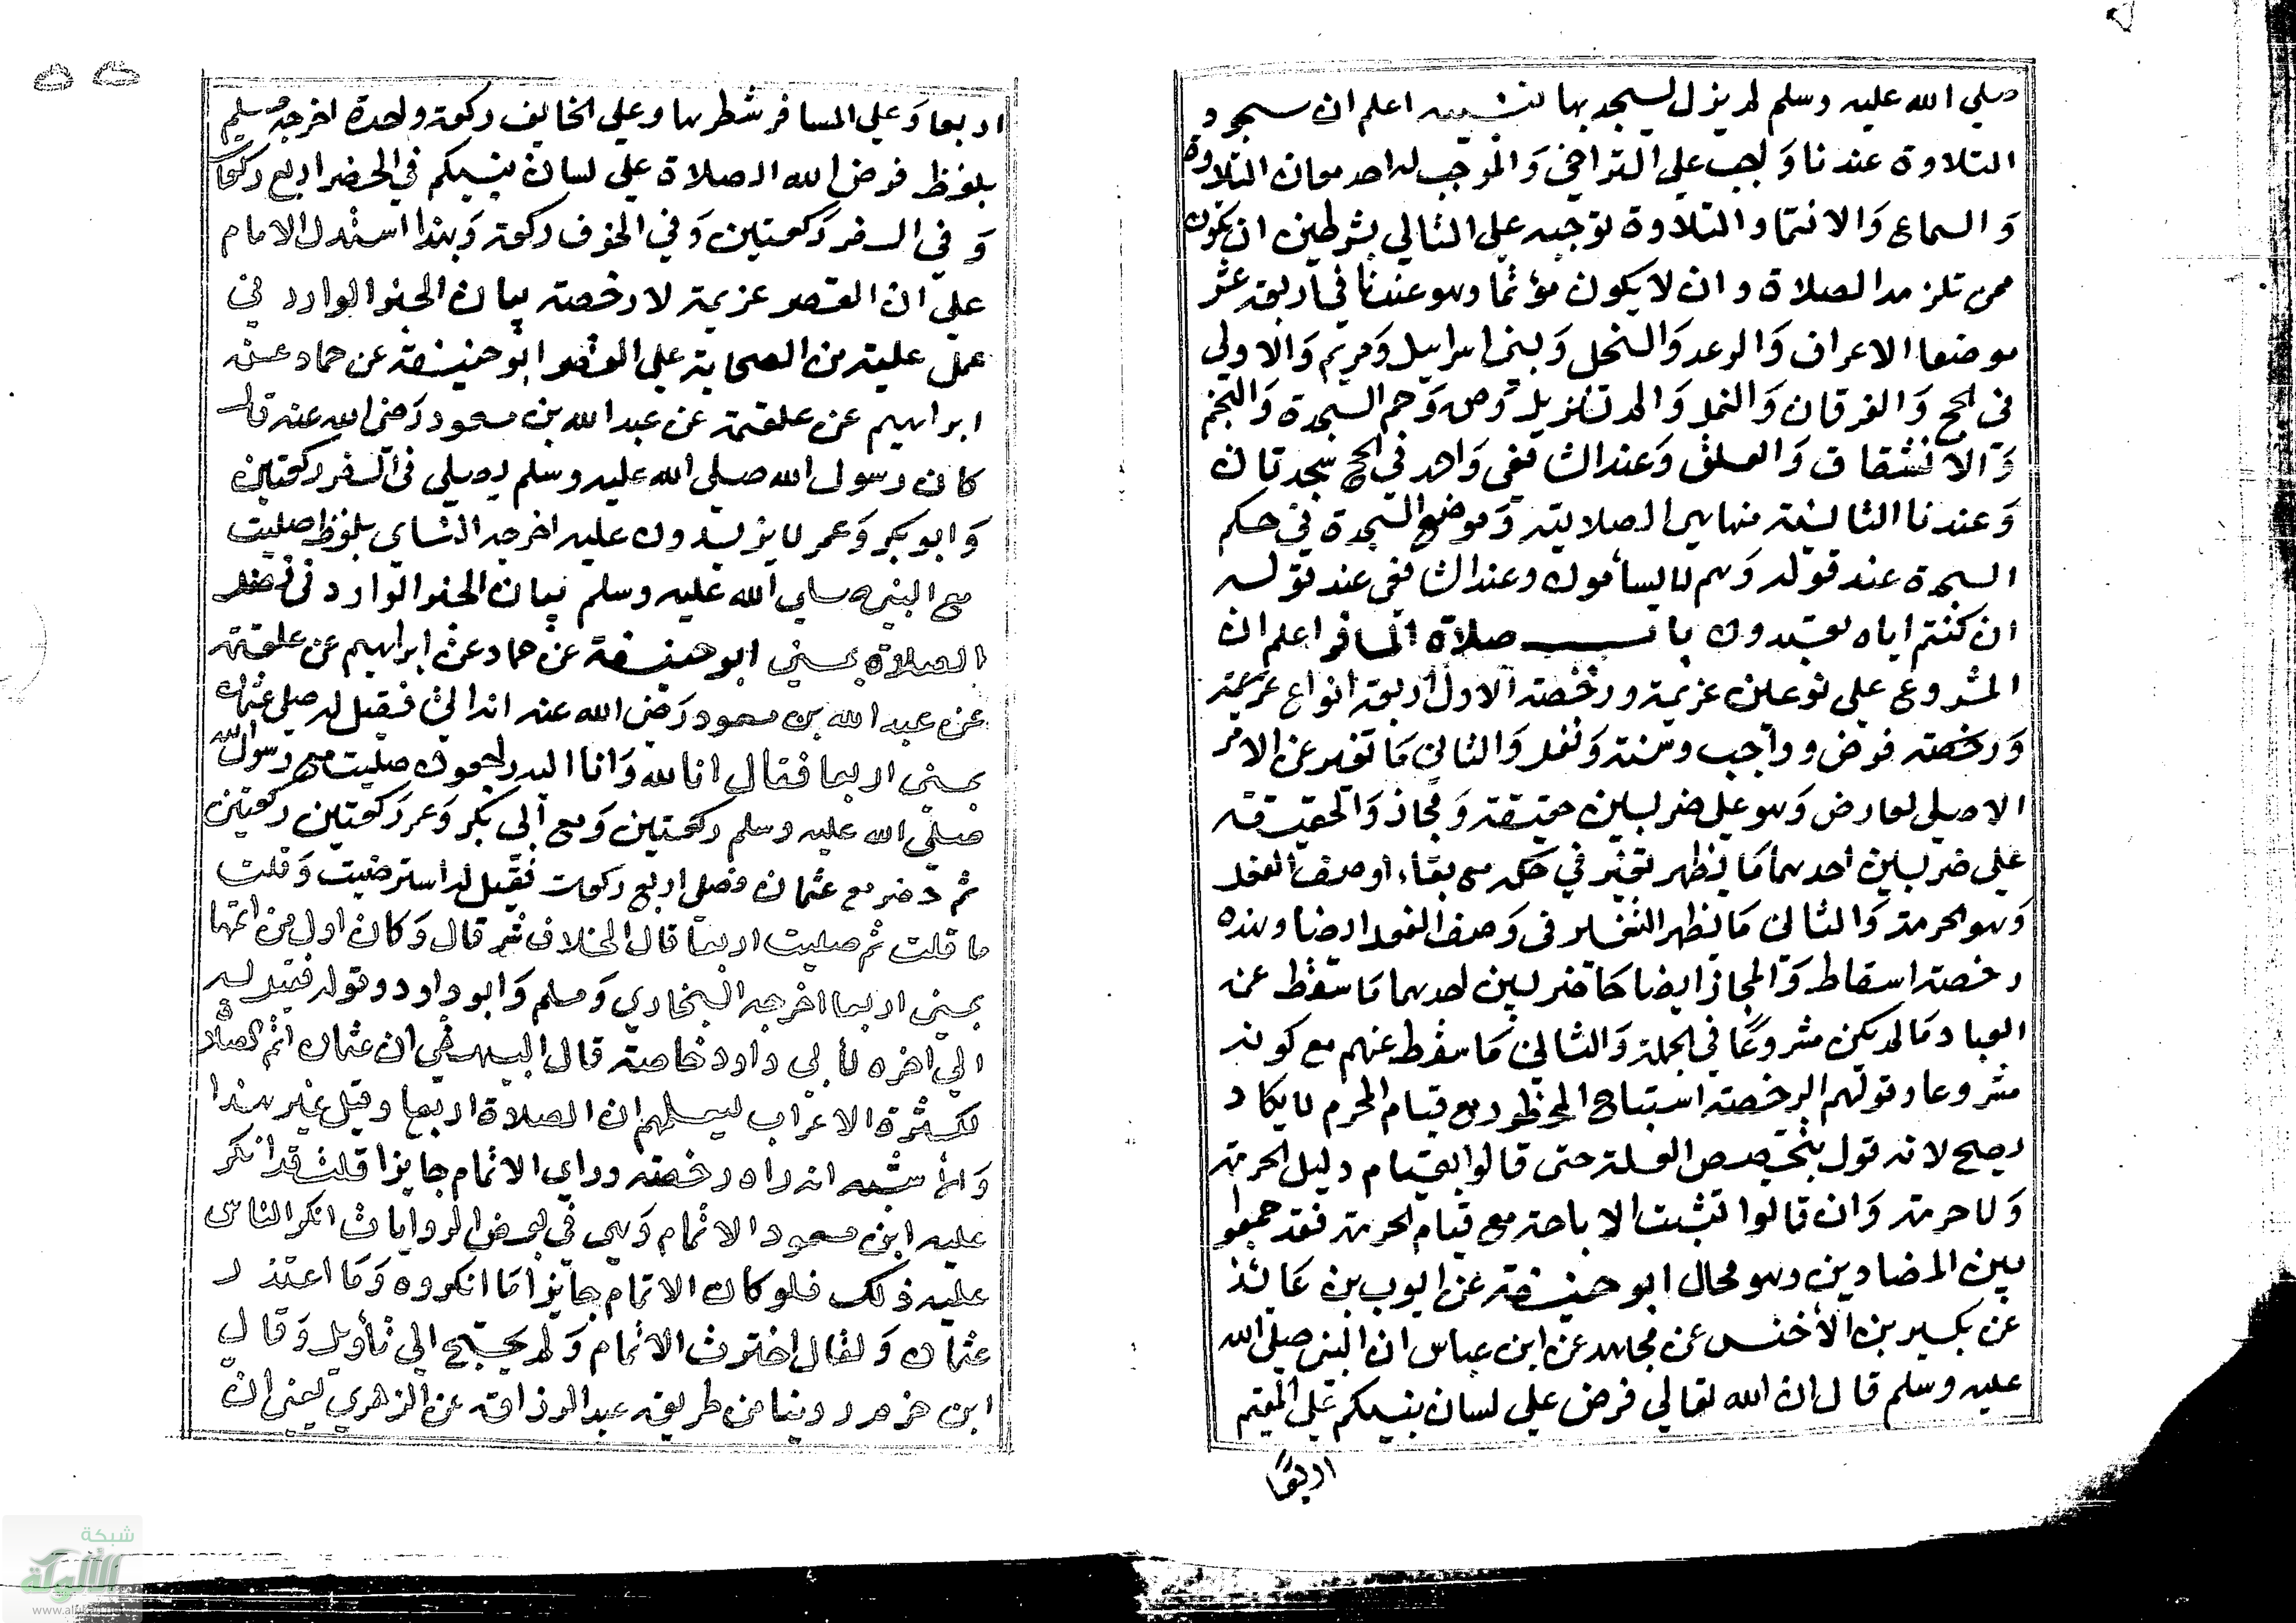 صلي الله عليه وسلم لم يزل يسجد بها تنبيه اعلم ان سجود
التلاوة عندنا وَاجب علي التراخي وَالموجب له احد معان التلاوة
وَ السماع وَالائتمام والتلاوة توجبه علي التالي بشرطين ان يكون
ممن تلزمه الصلاة وان لا يكون مؤتما وهو عندنا في اربعة عشر
موضعا الاعراف وَالرعد وَالنحل وَبني اسراييل وَمريم وَالاولي
في الحج وَالفرقان وَالنمل وَالم تنزيل وَص وَحم السجدة وَالنجم
وَالانشقاق وَالعلق وَعند الشافعي وَاحد في الحج سجدتان
وَعندنا الثانية منها هي الصلايية وَموضع السجدة في حكم
السجدة عند قوله وَهم لا يسأمون وعند الشافعي عند قوله
ان كنتم اياه تعبدون باب صلاة المسافر اعلم ان
المشروع علي نوعين عزيمة ورخصة الاول اربعة انواع عزيمة
وَرخصة فرض وواجب وسنة وَنفل وَالثاني مَا تغير عن الامر
الاصلي لعارض وَهو علي ضربين حقيقة وَمجاز وَالحقيقة
علي ضربين احدهما مَا يظهر تغير في حكمه مع بقاء وصف الفعل
وَهو الحرمة وَالثاني مَا يظهر التغير في وَصف الفعل ايضا وهذه
رخصة اسقاط وَالمجاز ايضا عَلي ضربين احدهما مَا سقط عن
العباد مَا لم يكن مشروعًا في الجملة وَالثاني مَا سقط عنهم مع كونه
مشروعا وقولهم الرخصة استباح المحظور مع قيام المحرم لا يكاد
يصح لانه قول بتخصيص العلة حتي قالوا بقيام دليل الحرمة
وَلا حرمة وَان قالوا تثبت الاباحة مع قيام الحرمة فقد جمعوا
بين المضادين وهو محال ابو حنيفة عن ايوب بن عَائذ
عن بكير بن الأخنس عن مجاهد عن ابن عباس ان النبي صلي الله
عليه وسلم قال ان الله تعالي فرض علي لسان نبيكم علي المقيم
اربعًا
اربعا وَعلي المسافر شطرها وعلي الخايف ركعة واحدة اخرجه مسلم
بلفظ فرض الله الصلاة علي لسان نبيكم في الحضر اربع ركعا
وَفي السفر رَكعتين وَفي الخوف ركعة وَبهذا استدل الامام
علي ان القصر عزيمة لا رخصة بيان الخبر الوارد في
عمل علية من الصحابة علي القصر ابو حنيفة عن حماد عن
ابراهيم عن علقمة عن عبد الله بن مسعود رَضي الله عنه قال
كان رسول الله صلي الله عليه وسلم يصلي في السفر ركعتين
وَابو بكر وَعمر لا يزيدون عليه اخرجه النساي بلفظ صليت
مع النبي صلي الله عليه وسلم بيان الخبر الوارد في فضل
الصلاة بمني ابو حنيفة عن حماد عن ابراهيم عن علقمة
عن عبد الله بن مسعود رَضي الله عنه انه اتي فقيل له صلي عثمان
بمني اربعا فقال انا لله وَانا اليه راجعون صليت مع رسول الله
صلي الله عليه وسلم ركعتين وَمع ابي بكر وَعمر رَكعتين ركعتين
ثم حضر مع عثمان فصلي اربع ركعات فقيل له استرجعت وَقلت
ما قلت ثم صليت اربعا قال الخلاف شر قال وَكان اول من اتمها
بمني اربعا اخرجه البخاري وَمسلم وَابو داود وقوله فقيل له
الي اخره لأبي داود خاصة قال البيهقي ان عثمان اتم الصلاة
لكثرة الاعراب ليعلمهم ان الصلاة اربعا وقيل غير هذا
وَالأشبه انه راه رخصة وراي الاتمام جايزا قلت قد انكر
عليه ابن مسعود الاتمام وَهي في بعض الروايات انكر الناس
عليه ذلك فلو كان الاتمام جايزا مَا انكروه وَمَا اعتذر
عثمان وَلقال اخترت الاتمام وَلم يحتج الي تأويل وَقال
ابن حزم روينا من طريق عبد الرزاق عن الزهري يعني ان
شبكة
الألوكة